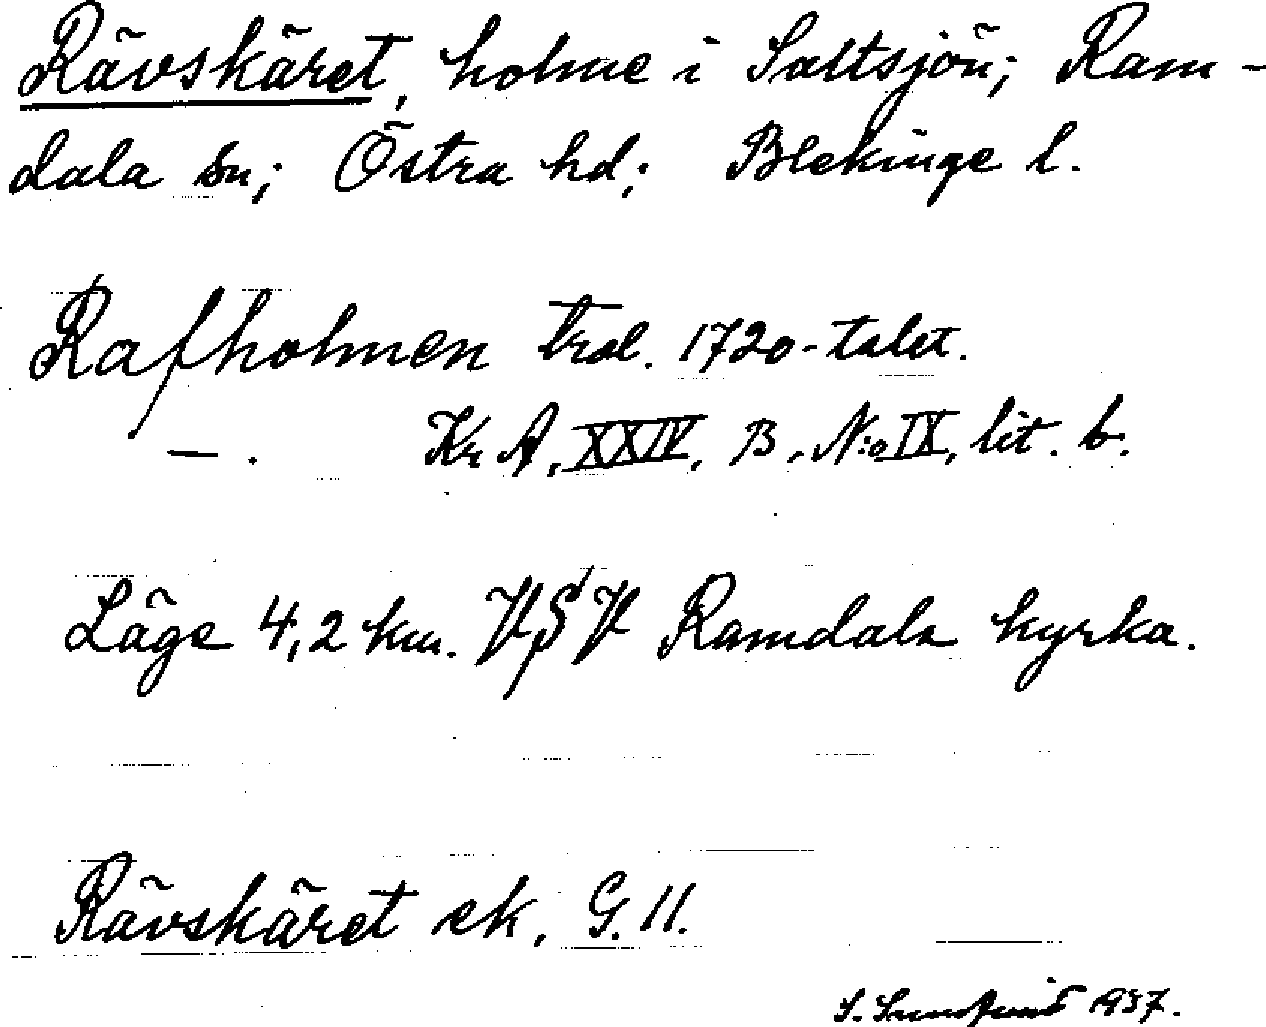 Rävskäret, holme i Saltsjön; Ram-
dala sn; Östra hd; Blekinge l.
Rafholmen trol. 1720-talet.
— . Kr A, XXIV, B, N:o IX, lit. b.
Läge 4,2 km. VSV Ramdala kyrka.
Rävskäret ek. G. 11.
S. Sundquist 1937.